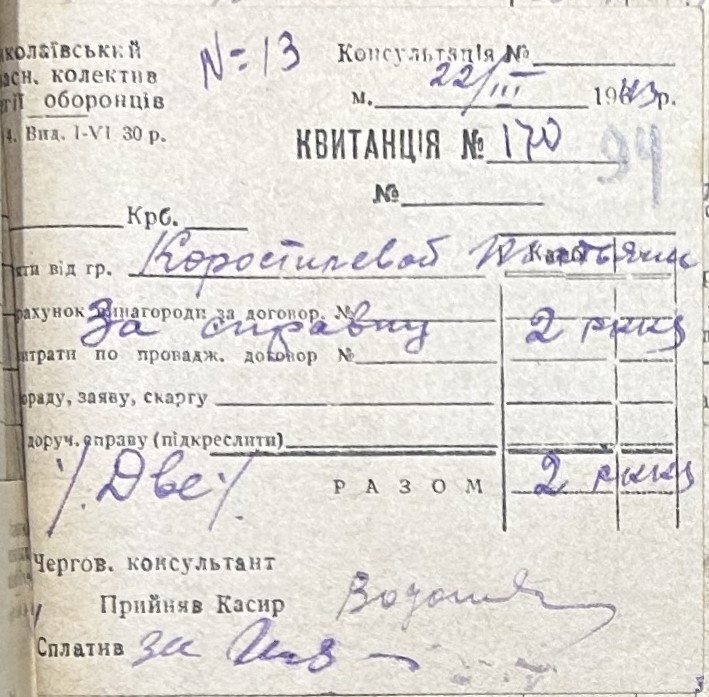 колаївський N=13 Консультація №
асн. колектив 22/III
гії оборонців м. 1943р.
4. Вид. I-VI 30 р. КВИТАНЦІЯ № 170 94
№
Крб.
яти від гр. Коростилевой Карб.
рахунок винагороди за договор. №
За справку 2
трати по провадж. договор №
ораду, заяву, скаргу
доруч. справу (підкреслити)
/. Две /. РАЗОМ 2
Чергов. консультант
Прийняв Касир
Сплатив за